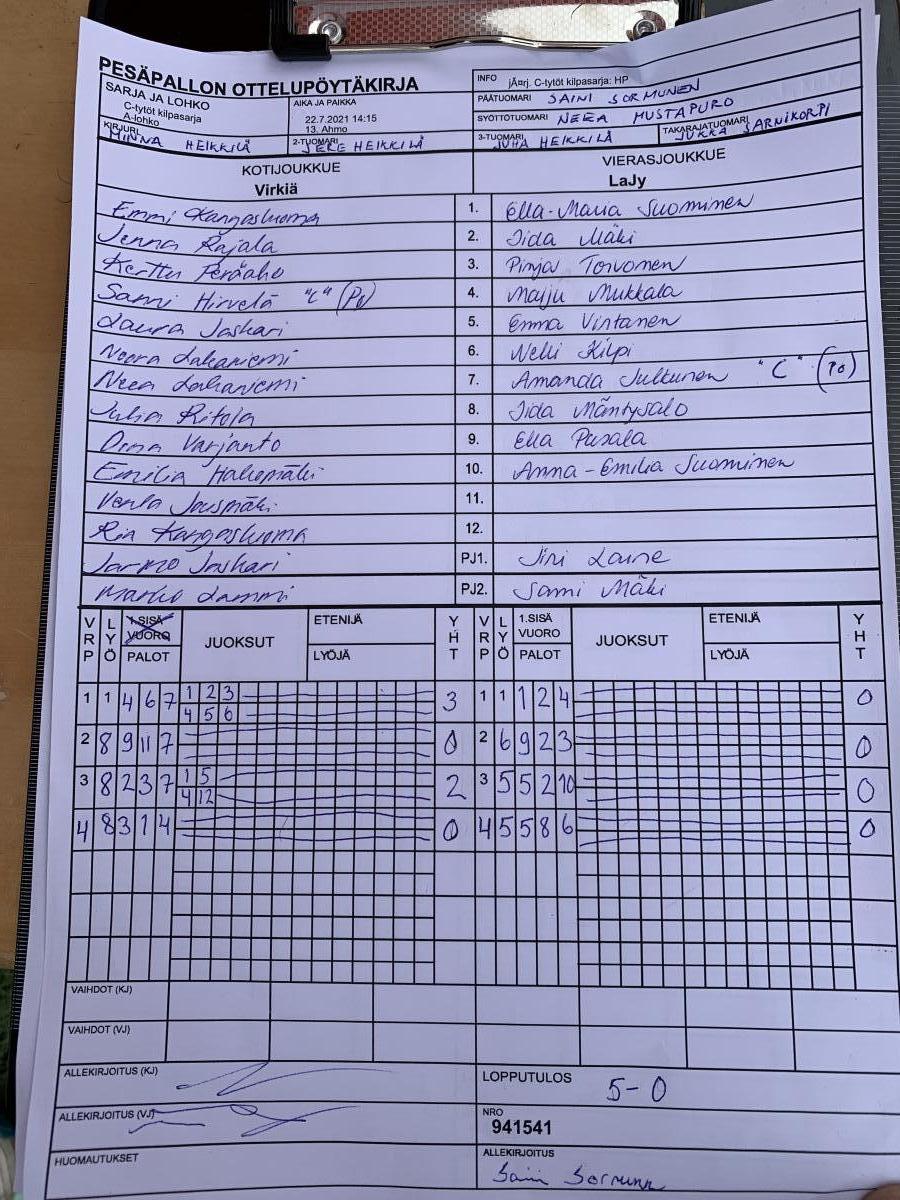 PESÄPALLON OTTELUPÖYTÄKIRJA
SARJA JA LOHKO
C-tytöt kilpasarja
A-lohko
AIKA JA PAIKKA
22.7.2021 14:15
13. Ahmo
INFO jÄ¤rj. C-tytöt kilpasarja: HP
PÄÄTUOMARI SAINI SORMUNEN
SYÖTTÖTUOMARI NEEA MUSTAPURO
KIRJURI MINNA HEIKKILÄ
2-TUOMARI JERE HEIKKILÄ
3-TUOMARI JUHA HEIKKILÄ
TAKARAJATUOMARI JUKKA SARNIKORPI
KOTIJOUKKUE
Virkiä
VIERASJOUKKUE
LaJy
Emmi Kangasluoma 1. Ella-Maria Suominen
Jenna Rajala 2. Iida Mäki
Kerttu Peräaho 3. Pinja Toivonen
Sami Hirvelä "C" (Po) 4. Maiju Mukkala
Laura Jaskari 5. Emma Virtanen
Noora Lakaniemi 6. Nelli Kilpi
Neea Lakaniemi 7. Amanda Julkunen "C" (Po)
Julia Ritola 8. Iida Mäntysalo
Oona Varjanto 9. Ella Pasala
Emilia Hakomäki 10. Anna-Emilia Suominen
Venla Jouspmäki 11.
Ria Kangasluoma 12.
Jarmo Jaskari PJ1. Jiri Laine
Marko Lammi PJ2. Sami Mäki
VRP LYÖ 1.SISÄ VUORO PALOT JUOKSUT ETENIJÄ LYÖJÄ YHT VRP LYÖ 1.SISÄ VUORO PALOT JUOKSUT ETENIJÄ LYÖJÄ YHT
1 1 4 6 7 1 2 3 3 1 1 1 2 4 0
4 5 6
2 8 9 11 7 0 2 6 9 2 3 0
3 8 2 3 7 1 5 2 3 5 5 2 10 0
4 12
4 8 3 1 4 0 4 5 5 8 6 0
VAIHDOT (KJ)
VAIHDOT (VJ)
ALLEKIRJOITUS (KJ)
LOPPUTULOS 5-0
ALLEKIRJOITUS (VJ)
NRO
941541
HUOMAUTUKSET
ALLEKIRJOITUS
Saini Sormunen